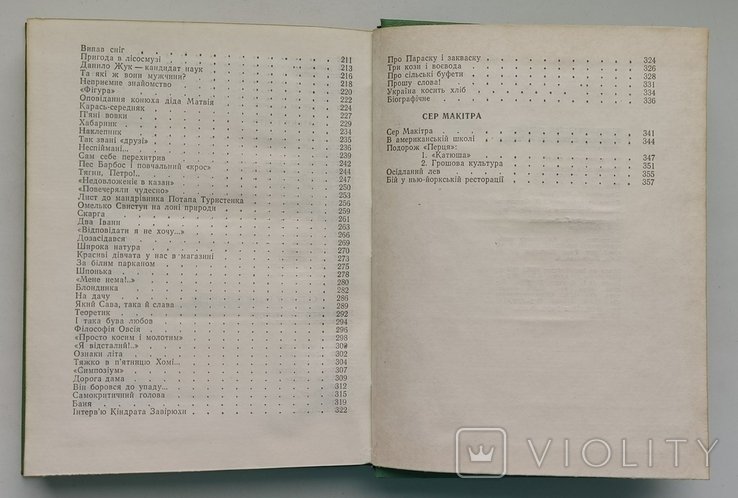 Випав сніг . . . 211
Пригода в лісосмузі . . . 213
Данило Жук — кандидат наук . . . 216
Та які ж вони мужчини? . . . 218
Неприємне знайомство . . . 220
«Фігура» . . . 222
Оповідання конюха діда Матвія . . . 224
Карась-середняк . . . 227
П'яні вовки . . . 229
Хабарник . . . 234
Наклепник . . . 235
Так звані «друзі» . . . 236
Неспіймані... . . . 239
Сам себе перехитрив . . . 242
Пес Барбос і повчальний «крос» . . . 244
Тягни, Петро!.. . . . 247
«Недовложеніє в казан» . . . 250
«Повечеряли чудесно» . . . 253
Лист до мандрівника Потапа Туристенка . . . 256
Омелько Свистун на лоні природи . . . 259
Скарга . . . 261
Два Івани . . . 263
«Відповідати я не хочу...» . . . 266
Дозасідався . . . 269
Широка натура . . . 270
Красиві дівчата у нас в магазині . . . 273
За білим парканом . . . 275
Шпонька . . . 278
«Мене нема!..» . . . 280
Блондинка . . . 282
На дачу . . . 286
Який Сава, така й слава . . . 289
Теоретик . . . 292
І така була любов . . . 294
Філософія Овсія . . . 296
«Просто косим і молотим» . . . 298
«Я відсталий!..» . . . 300
Ознаки літа . . . 302
Тяжко в п'ятницю Хомі... . . . 304
«Симпозіум» . . . 307
Дорога дама . . . 309
Він боровся до упаду... . . . 312
Самократичний голова . . . 315
Баня . . . 319
Інтерв'ю Кіндрата Завірюхи . . . 322
Про Параску і закваску . . . 324
Три кози і воєвода . . . 326
Про сільські буфети . . . 328
Прошу слова! . . . 331
Україна косить хліб . . . 334
Біографічне . . . 336
СЕР МАКІТРА
Сер Макітра . . . 341
В американській школі . . . 344
Подорож «Перця»:
1. «Катюша» . . . 347
2. Грошова культура . . . 351
Осідланий лев . . . 355
Бій у нью-йоркській ресторації . . . 357
VIOLITY